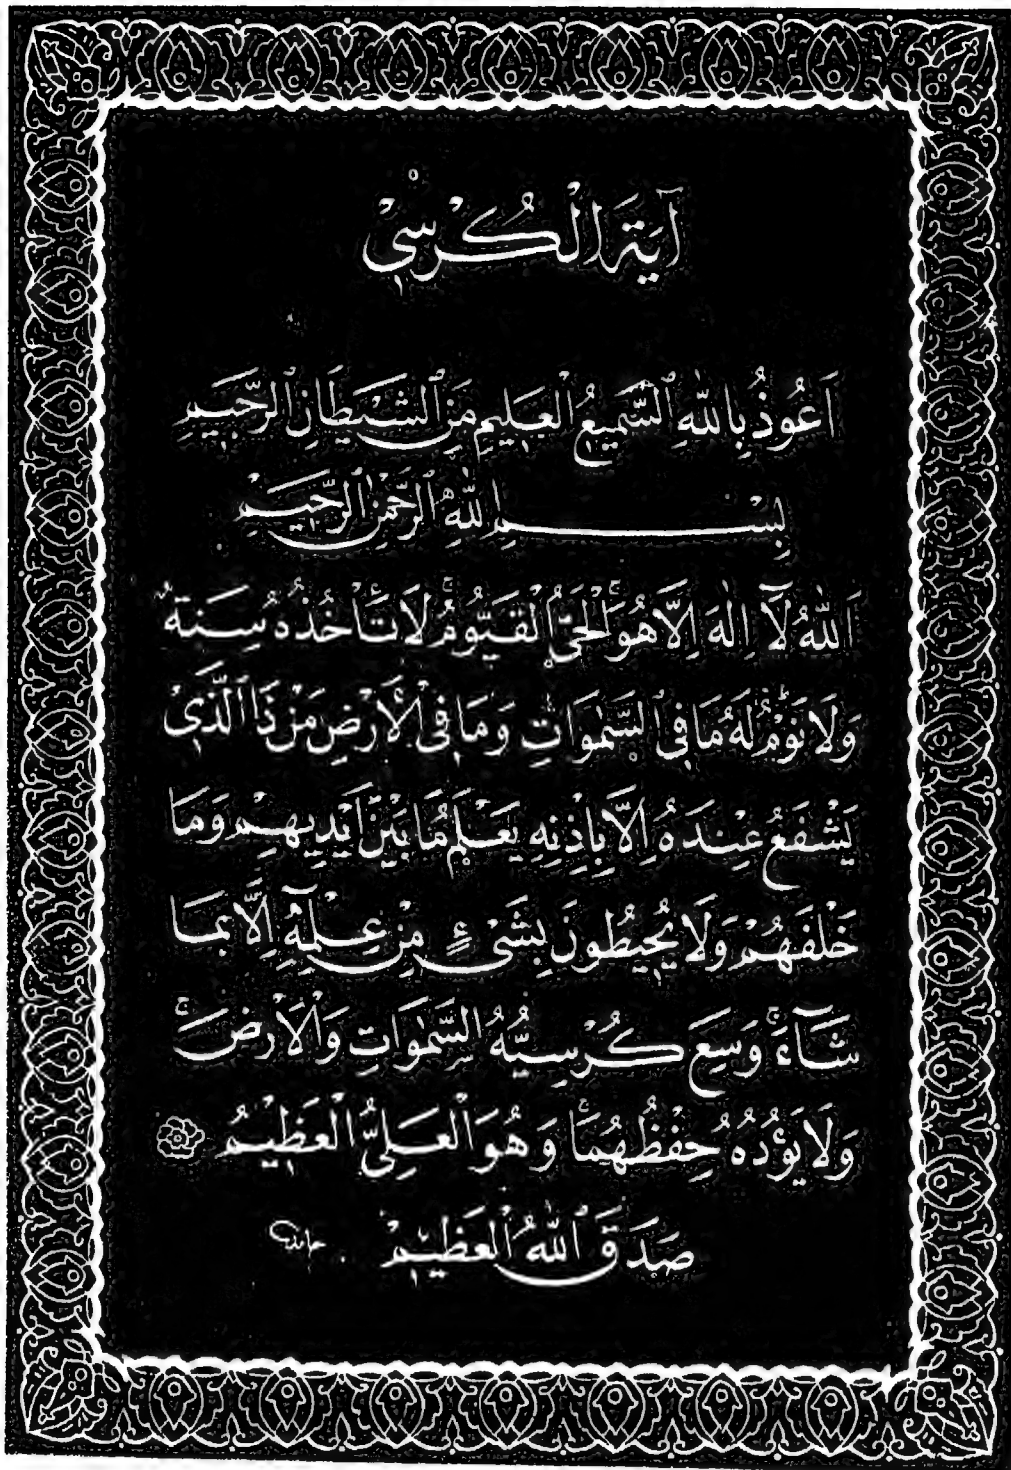 آيَةَ الْكُرْسِيْ
اَعُوذُ بِاللّٰهِ السَّمِيعُ الْعَلِيمِ مِنَ الشَّيْطَانِ الرَّجِيمِ
بِسْمِ اللّٰهِ الرَّحْمٰنِ الرَّحِيمْ
اَللّٰهُ لَآ اِلٰهَ اِلَّا هُوَۚ اَلْحَيُّ الْقَيُّومُۚ لَا تَأْخُذُهُ سِنَةٌ
وَلَا نَوْمٌۜ لَهُ مَا فِي السَّمٰوَاتِ وَمَا فِي الْاَرْضِۜ مَنْ ذَا الَّذِي
يَشْفَعُ عِنْدَهُ اِلَّا بِاِذْنِهِ يَعْلَمُ مَا بَيْنَ اَيْدِيهِمْ وَمَا
خَلْفَهُمْ وَلَا يُحِيطُونَ بِشَيْءٍ مِنْ عِلْمِهِٓ اِلَّا بِمَا
شَآءَۚ وَسِعَ كُرْسِيُّهُ السَّمٰوَاتِ وَالْاَرْضَۚ
وَلَا يَؤُدُهُ حِفْظُهُمَاۚ وَهُوَ الْعَلِيُّ الْعَظِيمُ
صَدَقَ اللّٰهُ الْعَظِيمْ